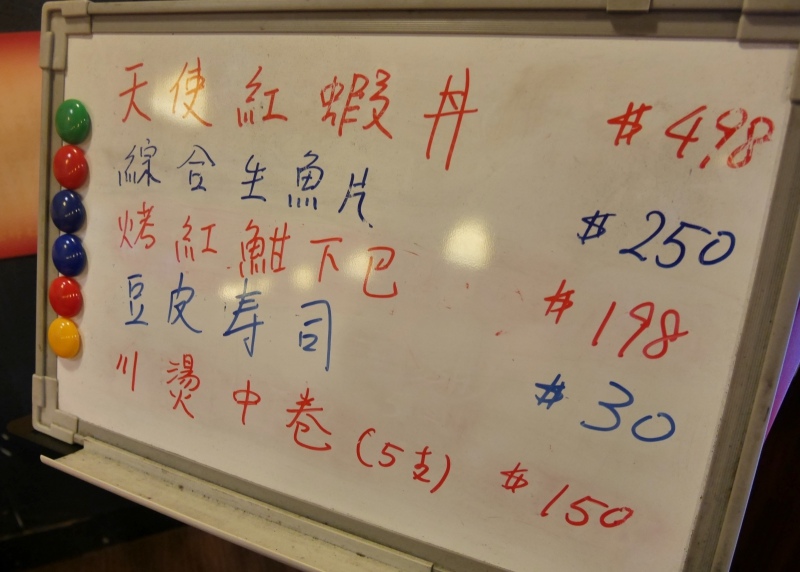 天使紅蝦丼 $498
綜合生魚片 $250
烤紅魽下巴 $198
豆皮寿司 $30
川燙中卷(5支) $150